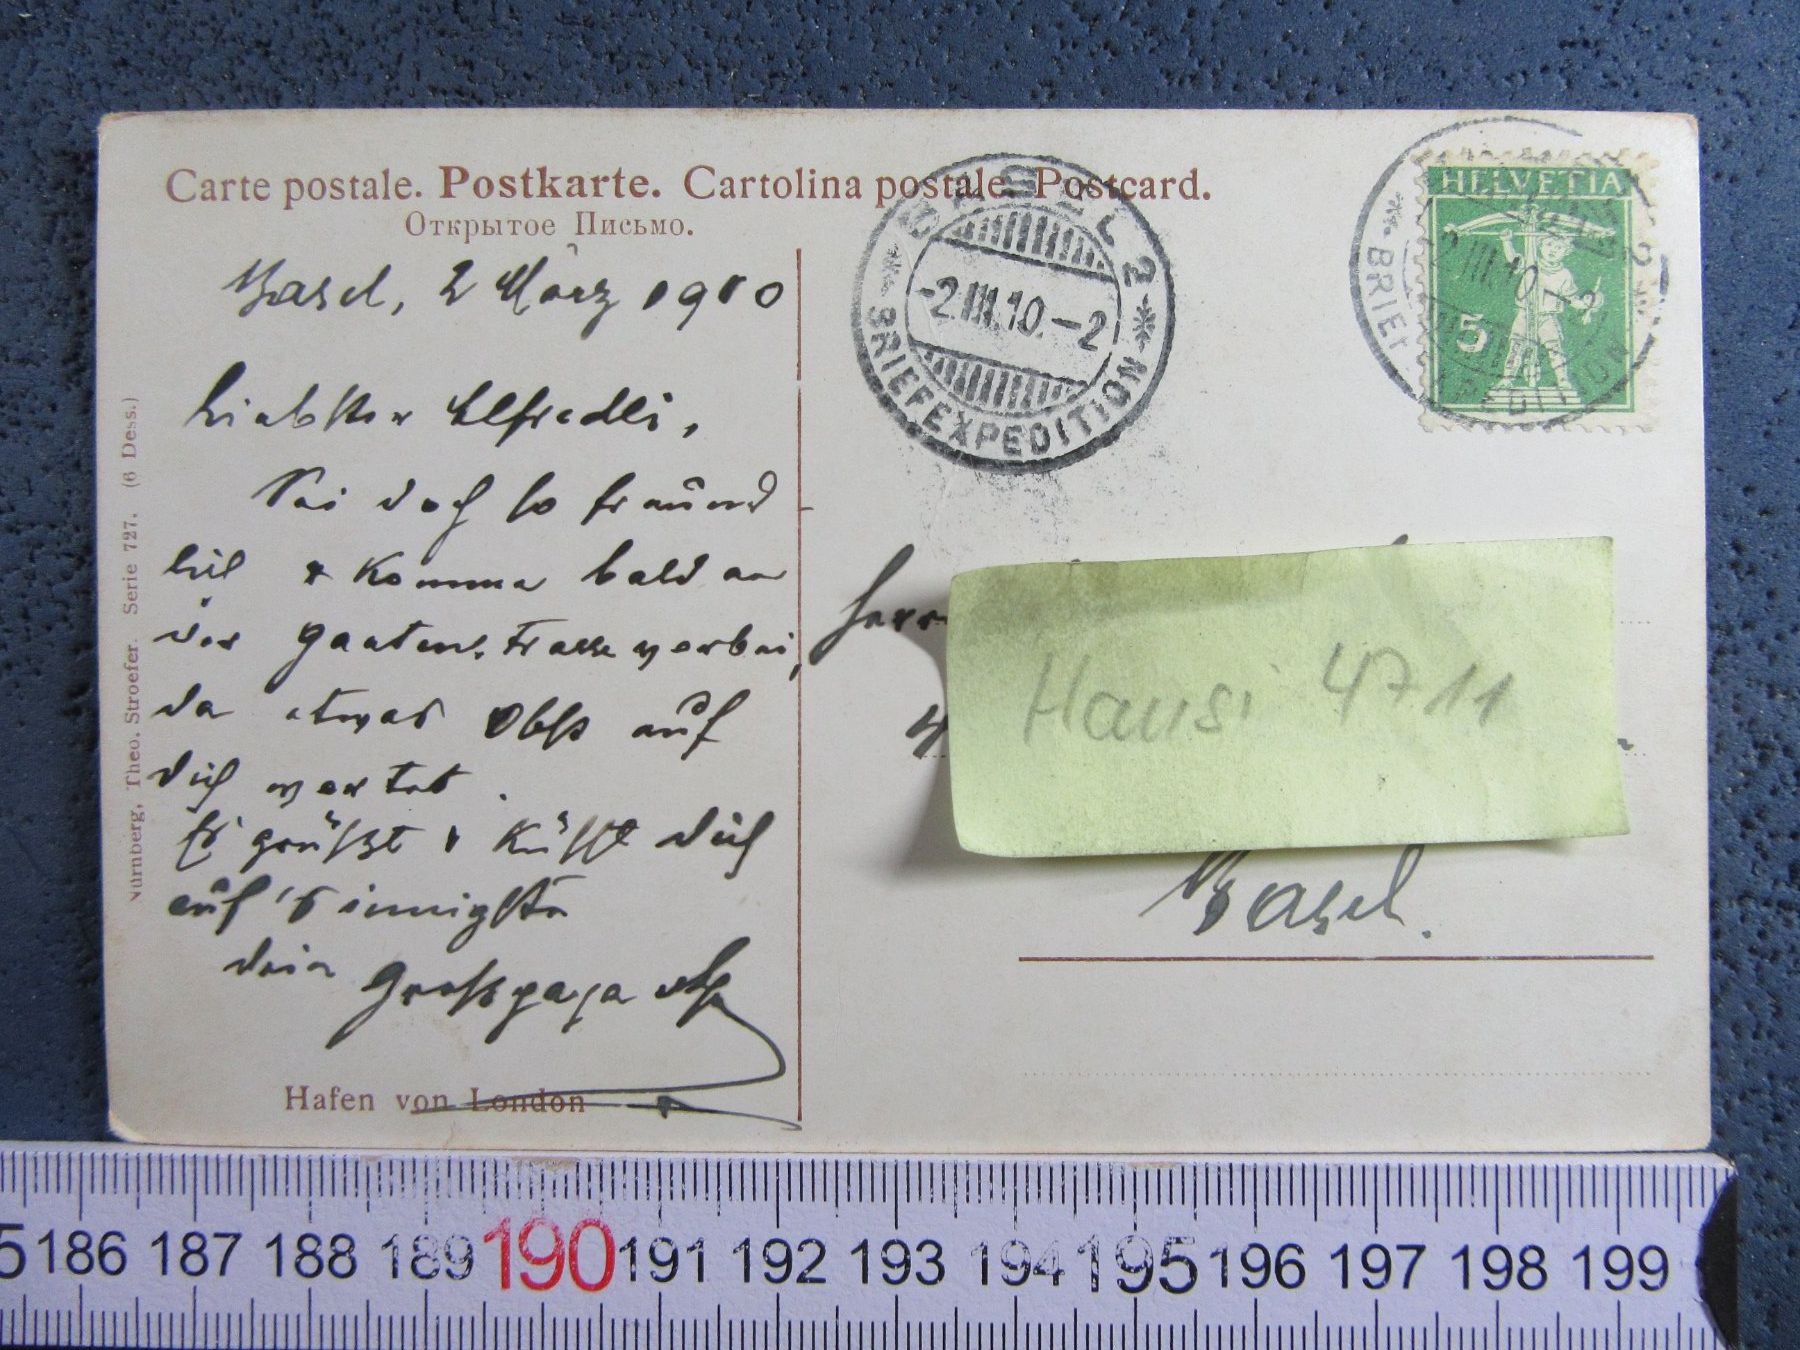 Carte postale. Postkarte. Cartolina postale. Postcard.
Открытое Письмо.
Basel, 2 März 1910
Liebster Alfredli,
Sei doch so freund
lich & komme bald an
der Gartenstrasse vorbei,
da etwas Obst auf
dich wartet.
Es grüsst & küsst dich
auf's innigste
dein Grosspapa
Hafen von London
Nürnberg, Theo. Stroefer. Serie 727. (6 Dess.)
BASEL 2
-2.III.10.-2
BRIEFEXPEDITION
HELVETIA
5
2
-2.III.10.-2
Herrn
Hansi 4711
Basel.
5 186 187 188 189 190 191 192 193 194 195 196 197 198 199